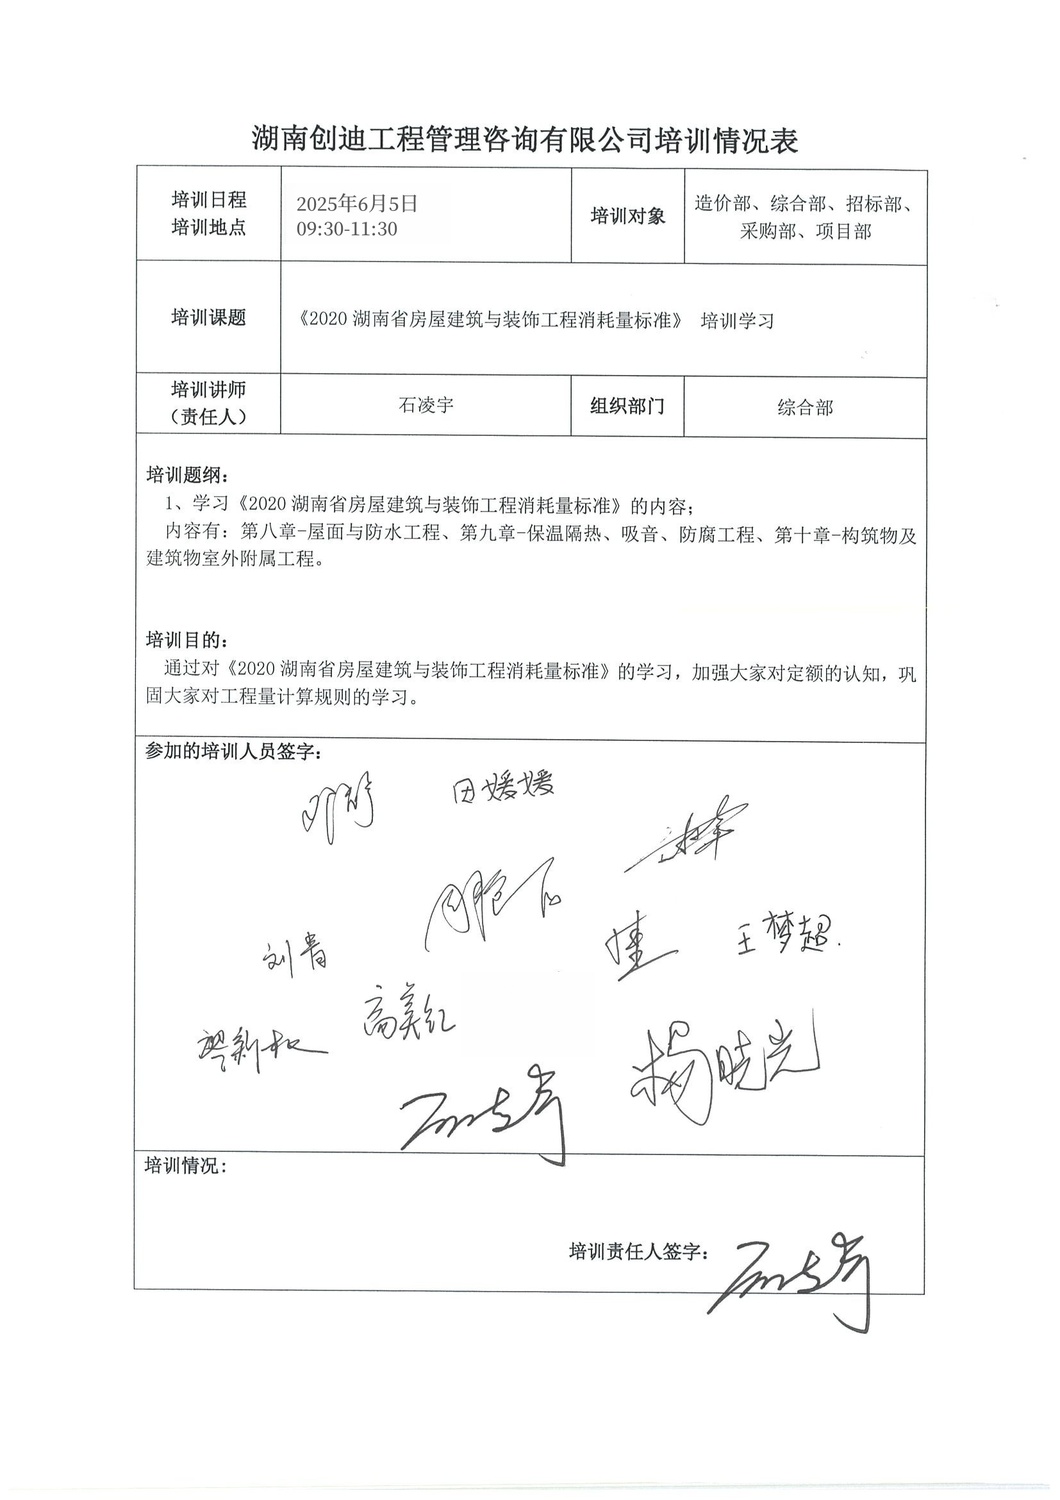 湖南创迪工程管理咨询有限公司培训情况表
培训日程
培训地点
2025年6月5日
09:30-11:30
培训对象
造价部、综合部、招标部、
采购部、项目部
培训课题
《2020 湖南省房屋建筑与装饰工程消耗量标准》 培训学习
培训讲师
（责任人）
石凌宇
组织部门
综合部
培训题纲：
1、学习《2020 湖南省房屋建筑与装饰工程消耗量标准》的内容；
内容有：第八章-屋面与防水工程、第九章-保温隔热、吸音、防腐工程、第十章-构筑物及
建筑物室外附属工程。
培训目的：
通过对《2020 湖南省房屋建筑与装饰工程消耗量标准》的学习，加强大家对定额的认知，巩
固大家对工程量计算规则的学习。
参加的培训人员签字：
田媛媛
刘青
王梦超.
高美红
杨晓光
培训情况：
培训责任人签字：